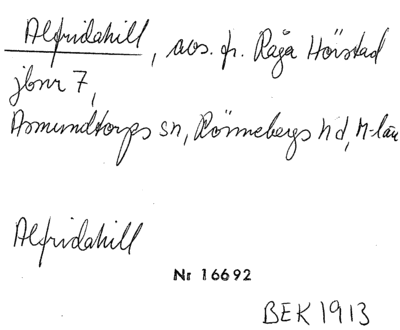 Alfridahill, avs. fr. Råga Hörstad
jbnr 7,
Asmundtorps sn, Rönnebergs hd, M-län
Alfridahill
Nr 16692
BEK 1913